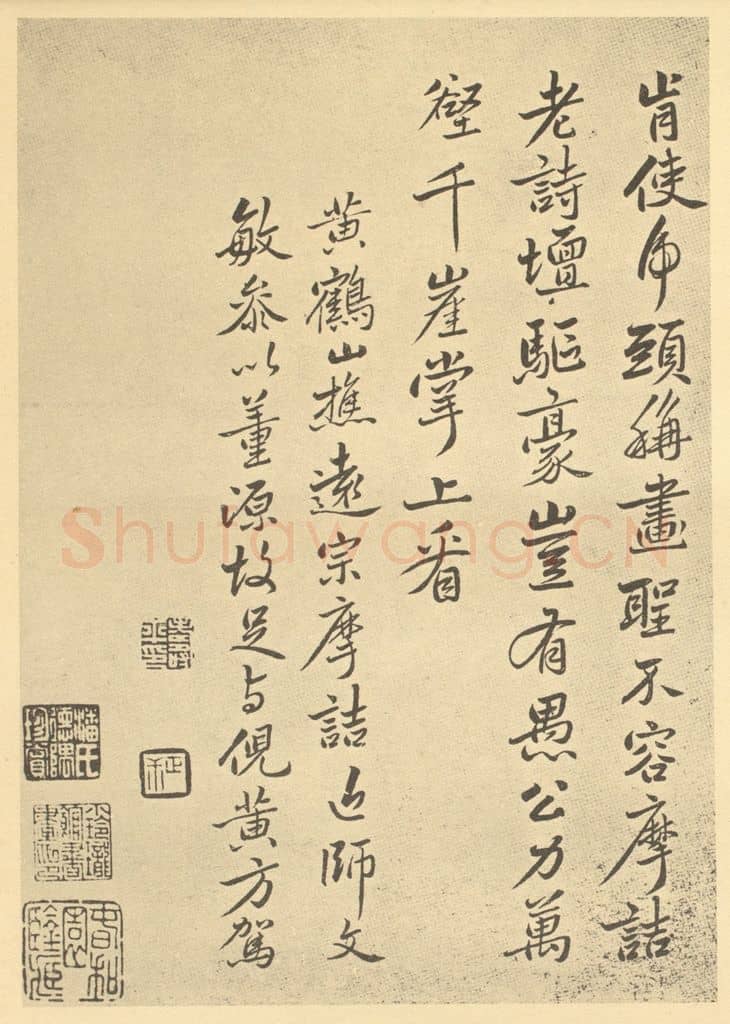 肯使虎頭稱畫聖不容摩詰
老詩壇驅豪豈有愚公力萬
壑千崖掌上看
黃鶴山樵遠宗摩詰近師文
敏參以董源故足与倪黃方駕
Shufawang.CN